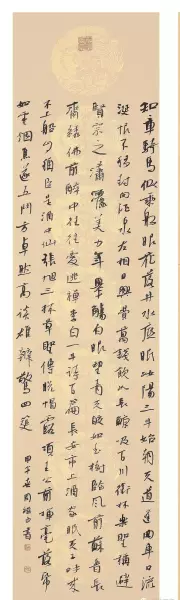 知章騎馬似乘船眼花落井水底眠汝陽三斗始朝天道逢曲車口流
涎恨不移封向酒泉左相日興費萬錢飲如長鯨吸百川銜杯樂聖稱避
賢宗之瀟灑美少年舉觴白眼望青天皎如玉樹臨風前蘇晉長
齋繡佛前醉中往往愛逃禪李白一斗詩百篇長安市上酒家眠天子呼來
不上船自稱臣是酒中仙張旭三杯草聖傳脫帽露頂王公前揮毫落紙
如雲煙焦遂五斗方卓然高談雄辯驚四筵
甲午